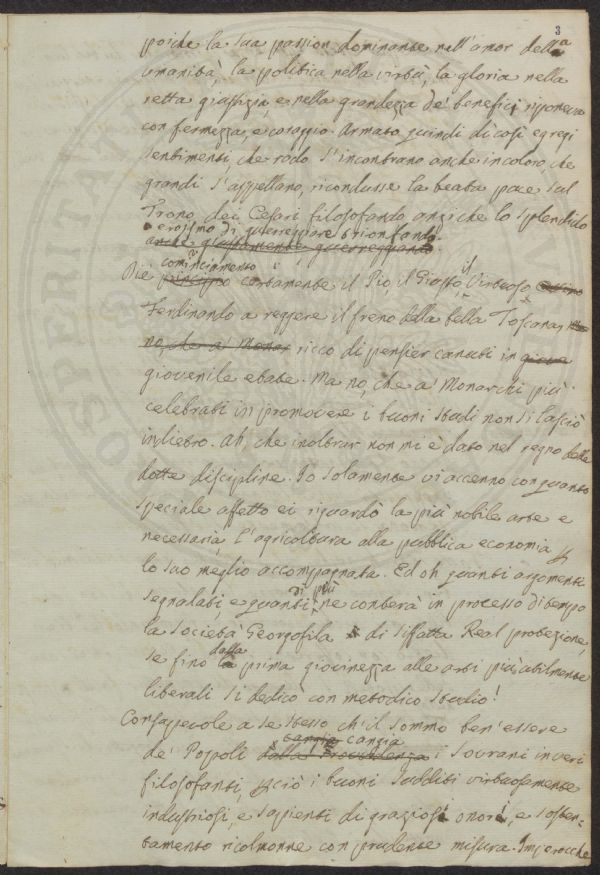 3
poiche la sua passion dominante nell'amor della
umanità, la politica nella virtù, la gloria nella
retta giustizia, e nella grandezza de' beneficj riponeva
con fermezza, e coraggio. Armato quindi di così egregi
sentimenti, che rado s'incontrano anche in coloro, che
grandi s'appellano, ricondusse la beata pace sul
Trono dei Cesari filosofando anzi che lo splendido
eroismo di guerreggiare trionfando.
anche giustamente guerreggiando.
cominciamento
Die principio certamente il Pio, il Giusto, il Virtuoso
Ferdinando a reggere il freno della bella Toscana
no, che a Monar ricco di pensier canuti in giove
giovenile etate. Ma no, che a Monarchi più
celebrati in promovere i buoni studi non si lasciò
indietro. Ah, che inoltrar non mi è dato nel regno delle
dotte discipline. Io solamente vi accenno con quanto
speciale affetto ei riguardò la più nobile arte e
necessaria, l'agricoltura alla pubblica economia
lo suo meglio accompagnata. Ed oh quanti argomenti
segnalati, e quanti di più ne conterà in processo di tempo
la Società Georgofila di siffatta Real protezione,
se fino dalla prima giovinezza alle arti più utilmente
liberali si dedicò con metodico studio!
Consapevole a se stesso ch'il sommo ben'essere
cangia
de' Popoli dalla Provvidenza i Sovrani in veri
filosofanti, ciò i buoni sudditi virtuosamente
industriosi, e sapienti di graziosi onori, e sosten-
tamento ricolmonne con prudente misura. Imperocche